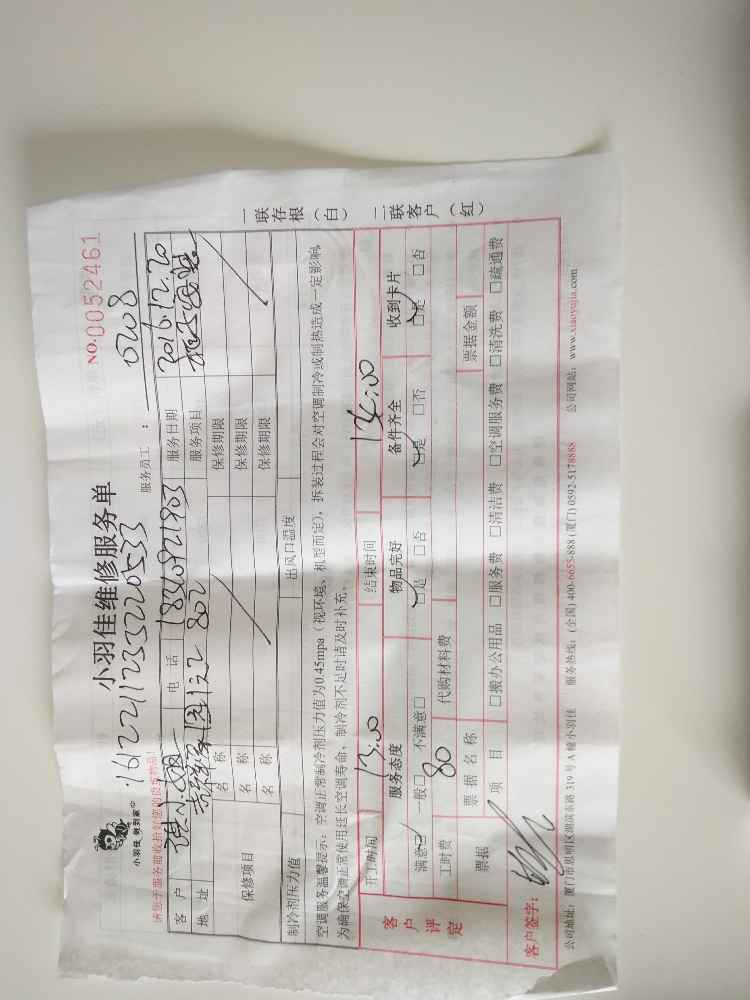 小羽佳 做到家
小羽佳维修服务单
NO.0052461
1612211233220533
服务员工 : 0208
请您于服务前收拾好您的贵重物品!
客 户 电 话 服务日期 2016.12.20
地 址 802 服务项目
保修项目 名 称 保修期限
名 称 保修期限
名 称 保修期限
制冷剂压力值 出风口温度
空调服务温馨提示:空调正常制冷剂压力值为0.45mpa(视环境、机型而定),拆装过程会对空调制冷或制热造成一定影响,
为确保空调正常使用延长空调寿命,制冷剂不足时请及时补充。
客户评定
开工时间 13:00 结束时间 14:00
服务态度 物品完好 备件齐全 收到卡片
满意☑ 一般□ 不满意□ ☑是 □否 ☑是 □否 ☑是 □否
工时费 80 代购材料费
票据 票 据 名 称 票据金额
项 目 □搬办公用品 □服务费 □清洁费 □空调服务费 □清洗费 □疏通费
客户签字:
公司地址:厦门市思明区湖滨东路 319 号 A 幢小羽佳 服务热线:(全国) 400-6655-888 (厦门) 0592-5178888 公司网站:www.xiaoyujia.com
一联存根(白) 二联客户(红)